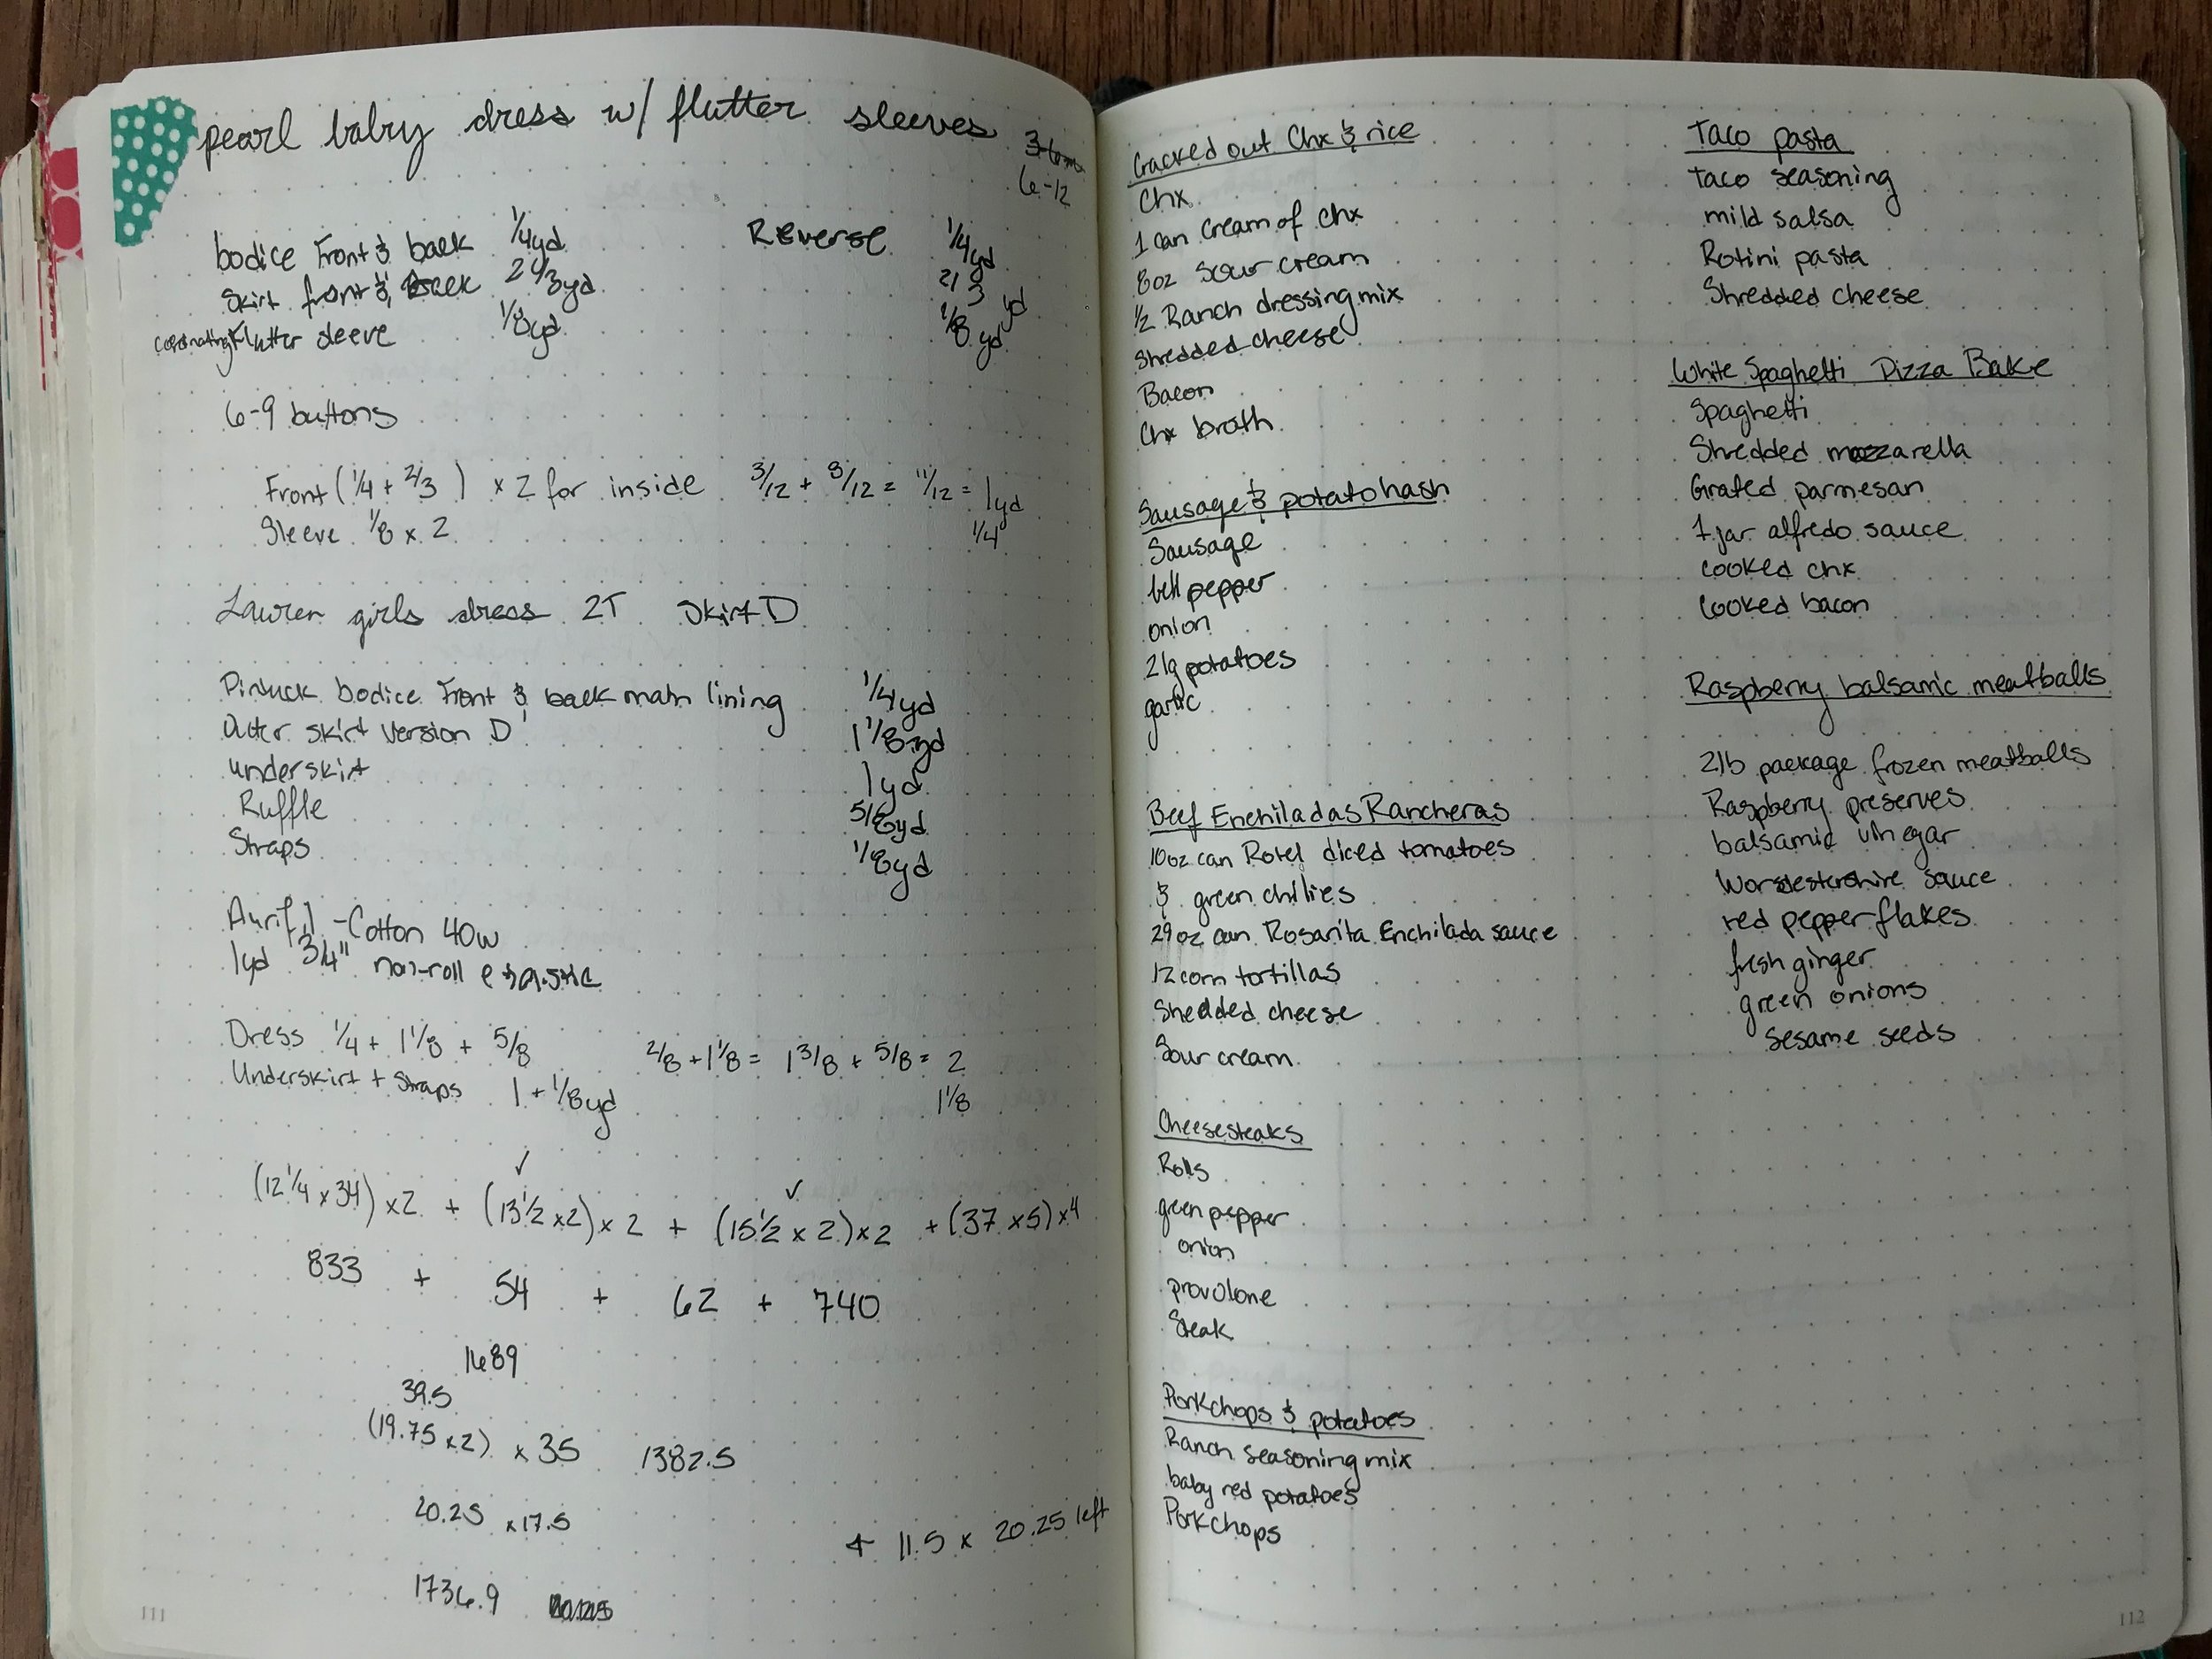 pearl baby dress w/ flutter sleeves
6-12
bodice Front & back 1/4yd Reverse 1/4yd
Skirt front & back 2/3yd 2/3 yd
coordinating Flutter sleeve 1/8yd 1/8 yd
6-9 buttons
Front (1/4 + 2/3) x 2 for inside 3/12 + 8/12 = 11/12 = 1yd
Sleeve 1/8 x 2 1/4
Lauren girls dress 2T Skirt D
Pintuck bodice Front & back main lining 1/4yd
Outer skirt version D 1 1/8 yd
underskirt 1yd
Ruffle 5/8yd
Straps 1/8yd
Aurifil - Cotton 40w
1yd 3/4" non-roll elastic
Dress 1/4 + 1 1/8 + 5/8 2/8 + 1 1/8 = 1 3/8 + 5/8 = 2
Underskirt + Straps 1 + 1/8yd 1 1/8
✓ ✓
(12 1/4 x 34) x 2 + (13 1/2 x 2) x 2 + (15 1/2 x 2) x 2 + (37 x 5) x 4
833 + 54 + 62 + 740
1689
39.5
(19.75 x 2) x 35 1382.5
20.25 x 17.5
+ 11.5 x 20.25 left
1736.9
111
Cracked out Chx & rice
Chx
1 can cream of chx
8oz Sour cream
1/2 Ranch dressing mix
Shredded cheese
Bacon
Chx broth
Sausage & potato hash
Sausage
bell pepper
onion
2 lg potatoes
garlic
Beef Enchiladas Rancheras
10oz can Rotel diced tomatoes
& green chilies
29oz can Rosarita Enchilada sauce
12 corn tortillas
Shedded cheese
Sour cream
Cheesesteaks
Rolls
green pepper
onion
provolone
Steak
Porkchops & potatoes
Ranch seasoning mix
baby red potatoes
Porkchops
Taco pasta
Taco seasoning
mild salsa
Rotini pasta
Shredded cheese
White Spaghetti Pizza Bake
Spaghetti
Shredded mozzarella
Grated parmesan
1 jar alfredo sauce
cooked chx
cooked bacon
Raspberry balsamic meatballs
2lb package frozen meatballs
Raspberry preserves
balsamic vinegar
Worsdestershire sauce
red pepper flakes
fresh ginger
green onions
Sesame seeds
112